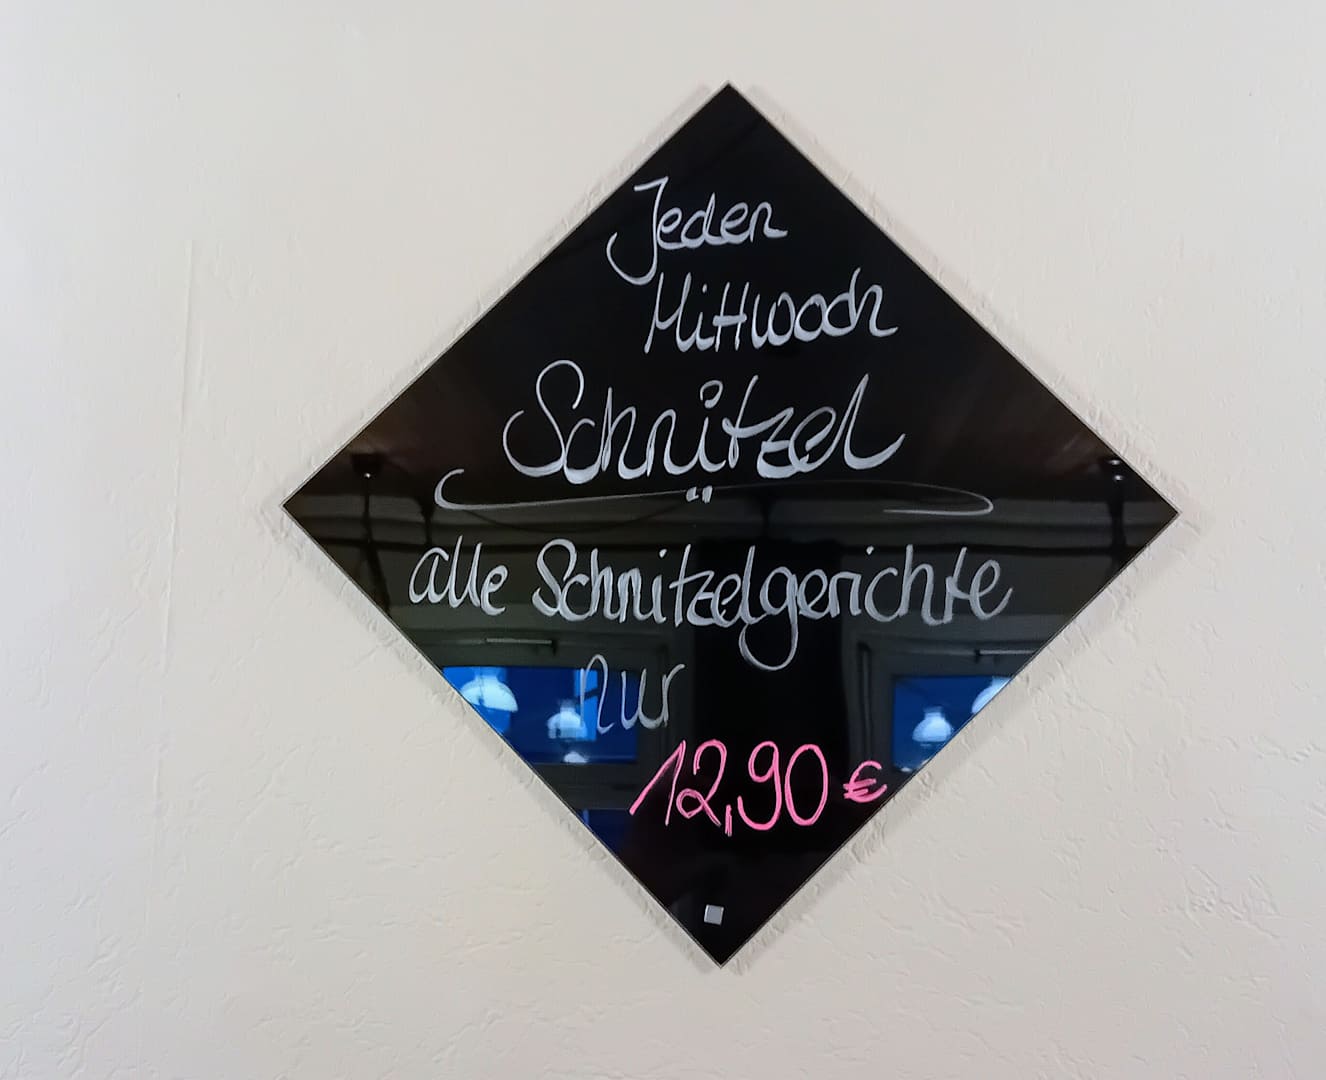 Jeden
Mittwoch
Schnitzel
alle Schnitzelgerichte
nur
12,90 €